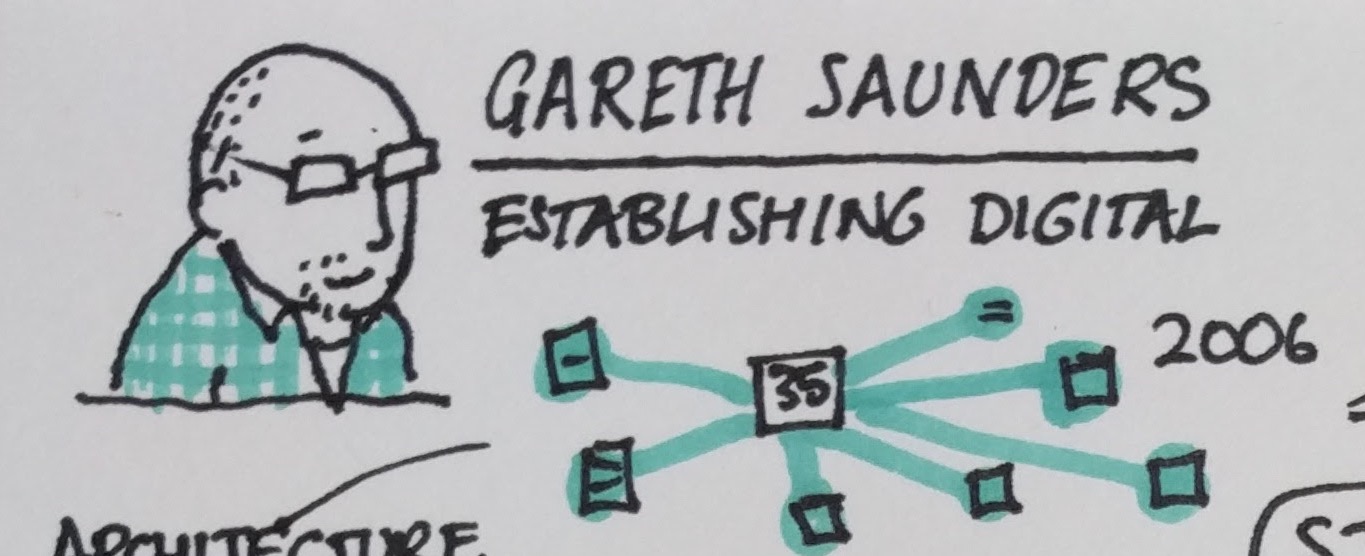 GARETH SAUNDERS
ESTABLISHING DIGITAL
2006
35
ARCHITECTURE